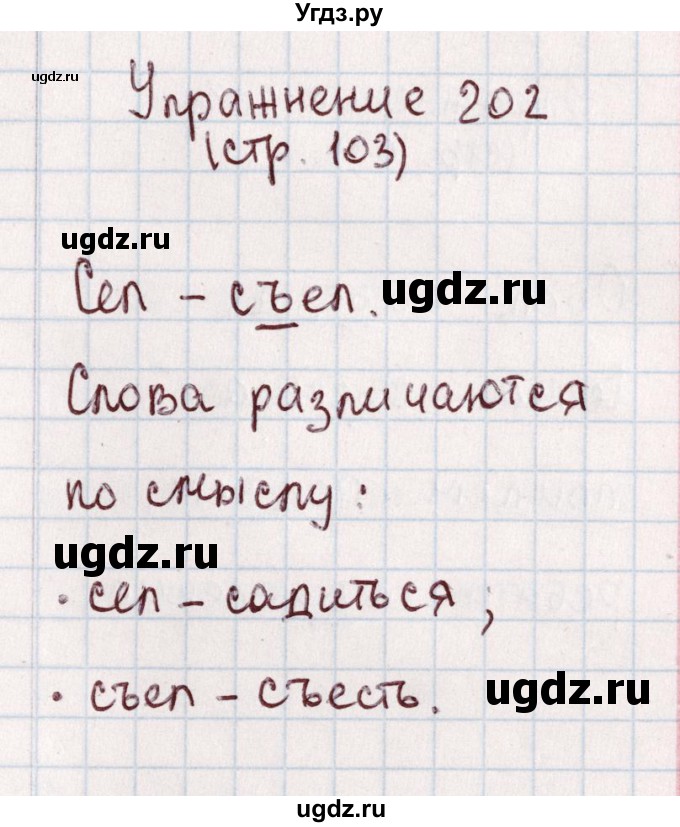 Угдз.ру
ugdz.ru
Упражнение 202
(стр. 103)
ugdz.ru
Сел – съел. ugdz.ru
Слова различаются
по смыслу:
ugdz.ru
• сел – садиться;
• съел – съесть. ugdz.ru
ugdz.ru